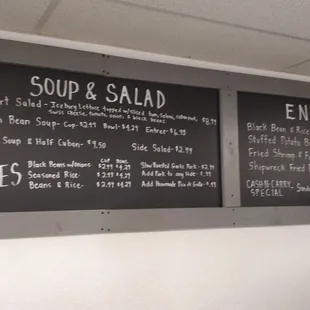 SOUP & SALAD
rt Salad - Iceburg Lettuce topped w/sliced ham, Salami, $8.99
Swiss cheese, tomato, onion, & black beans.
Bean Soup - Cup - $2.99 Bowl - $4.29 Entree - $6.95
Soup & Half Cuban - $9.50 Side Salad - $2.99
CUP BOWL
ES Black Beans w/onions - $2.99 $4.29 Slow Roasted Garlic Pork - $2.99
Seasoned Rice - $2.99 $4.29 Add Pork to any Side -
Beans & Rice - $2.99 $4.29 Add Homemade Pico de Gallo -
EN
Black Bean & Rice
Stuffed Potato B
Fried Shrimp & F
Shipwreck Fried
CASH-N-CARRY
SPECIAL